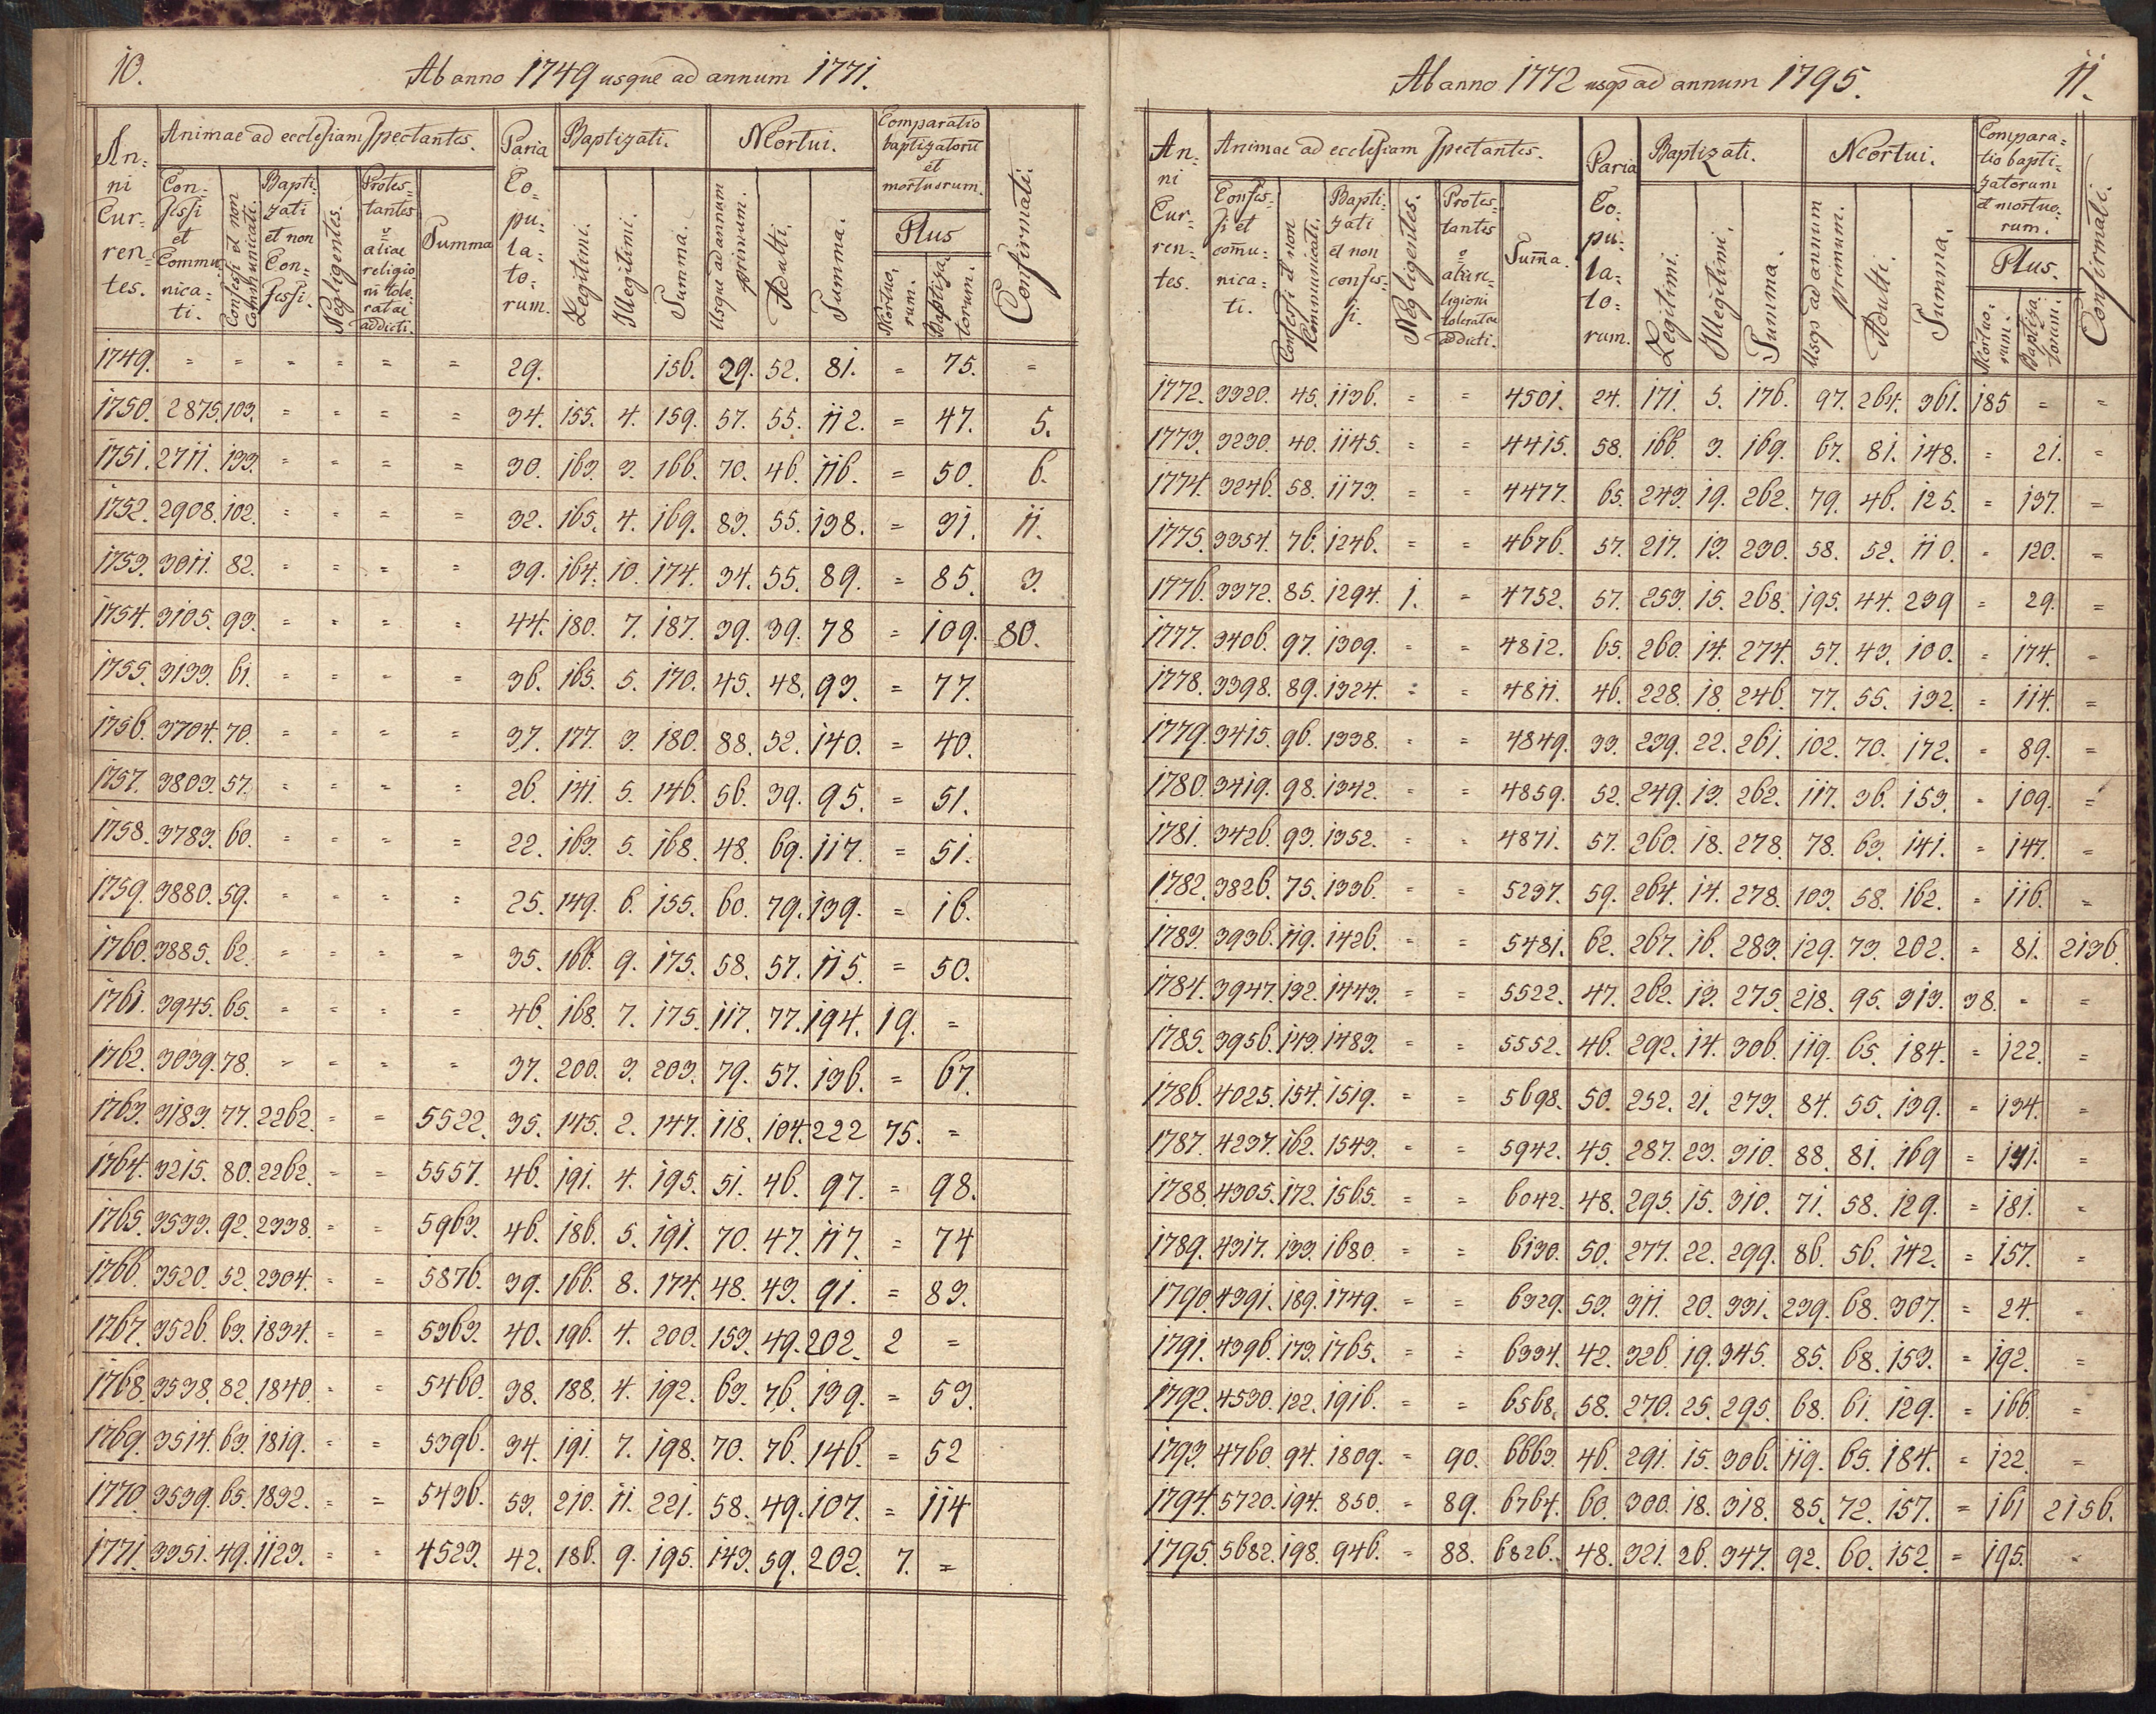 10.
Ab anno 1749 usque ad annum 1771.
An= ni Cur= ren= tes. | Animae ad ecclesiam spectantes. | Paria Co= pu= la= to= rum. | Baptizati. | Mortui. | Comparatio baptizatorū et mortuorum. | Confirmati.
Con= fessi et Commu nica= ti. | Confessi et non Communicati. | Bapti= zati et non Con= fessi. | Negligentes. | Protes= tantes ū aliae religio ni tole ratae addicti. | Summa | Legitimi. | Illegitimi. | Summa. | Usque ad annum primum. | Adulti. | Summa. | Plus | Mortuo= rum. | Baptiza= torum.
1749. = = = = = = 29. 156. 29. 52. 81. = 75. =
1750. 2875. 103. = = = = 34. 155. 4. 159. 57. 55. 112. = 47. 5.
1751. 2711. 133. = = = = 30. 163. 3. 166. 70. 46. 116. = 50. 6.
1752. 2908. 102. = = = = 32. 165. 4. 169. 83. 55. 138. = 31. 11.
1753. 3011. 82. = = = = 39. 164. 10. 174. 34. 55. 89. = 85. 3.
1754. 3105. 93. = = = = 44. 180. 7. 187. 39. 39. 78 = 109. 80.
1755. 3133. 61. = = = = 36. 165. 5. 170. 45. 48. 93. = 77.
1756. 3704. 70. = = = = 37. 177. 3. 180. 88. 52. 140. = 40.
1757. 3803. 57. = = = = 26. 141. 5. 146. 56. 39. 95. = 51.
1758. 3783. 60. = = = = 22. 163. 5. 168. 48. 69. 117. = 51.
1759. 3880. 59. = = = = 25. 149. 6. 155. 60. 79. 139. = 16.
1760. 3885. 62. = = = = 35. 166. 9. 175. 58. 57. 115. = 50.
1761. 3945. 65. = = = = 46. 168. 7. 175. 117. 77. 194. 19. =
1762. 3039. 78. = = = = 37. 200. 3. 203. 79. 57. 136. = 67.
1763. 3183. 77. 2262. = = 5522. 35. 145. 2. 147. 118. 104. 222 75. =
1764. 3215. 80. 2262. = = 5557. 46. 191. 4. 195. 51. 46. 97. = 98.
1765. 3533. 92. 2338. = = 5963. 46. 186. 5. 191. 70. 47. 117. = 74
1766. 3520. 52. 2304. = = 5876. 39. 166. 8. 174. 48. 43. 91. = 83.
1767. 3526. 63. 1834. = = 5363. 40. 196. 4. 200. 153. 49. 202. 2 =
1768. 3538. 82. 1840. = = 5460. 38. 188. 4. 192. 63. 76. 139. = 53.
1769. 3514. 63. 1819. = = 5396. 34. 191. 7. 198. 70. 76. 146. = 52
1770. 3539. 65. 1832. = = 5436. 53. 210. 11. 221. 58. 49. 107. = 114
1771. 3351. 49. 1123. = = 4523. 42. 186. 9. 195. 143. 59. 202. 7. =
Ab anno 1772 usqs ad annum 1795.
11.
An= ni Cur= ren= tes. | Animae ad ecclesiam spectantes. | Paria Co= pu= la= to= rum. | Baptizati. | Mortui. | Compara= tio bapti= zatorum et mortuo= rum. | Confirmati.
Confes= si et com̄u= nica= ti. | Confessi et non Communicati. | Bapti= zati et non confes= si. | Negligentes. | Protes= tantes ū aliae re= ligioni toleratae addicti. | Sum̄a. | Legitimi. | Illegitimi. | Summa. | Usqs ad annum primum. | Adulti. | Summa. | Plus. | Mortuo= rum. | Baptiza= torum.
1772. 3320. 45. 1136. = = 4501. 24. 171. 5. 176. 97. 264. 361. 185 = =
1773. 3230. 40. 1145. = = 4415. 58. 166. 3. 169. 67. 81. 148. = 21. =
1774. 3246. 58. 1173. = = 4477. 65. 243. 19. 262. 79. 46. 125. = 137. =
1775. 3354. 76. 1246. = = 4676. 57. 217. 13. 230. 58. 52. 110. = 120. =
1776. 3372. 85. 1294. 1. = 4752. 57. 253. 15. 268. 195. 44. 239 = 29. =
1777. 3406. 97. 1309. = = 4812. 65. 260. 14. 274. 57. 43. 100. = 174. =
1778. 3398. 89. 1324. = = 4811. 46. 228. 18. 246. 77. 55. 132. = 114. =
1779. 3415. 96. 1338. = = 4849. 33. 239. 22. 261. 102. 70. 172. = 89. =
1780. 3419. 98. 1342. = = 4859. 52. 249. 13. 262. 117. 36. 153. = 109. =
1781. 3426. 93. 1352. = = 4871. 57. 260. 18. 278. 78. 63. 141. = 147. =
1782. 3826. 75. 1336. = = 5237. 59. 264. 14. 278. 103. 58. 162. = 116. =
1783. 3936. 119. 1426. = = 5481. 62. 267. 16. 283. 129. 73. 202. = 81. 2136.
1784. 3947. 132. 1443. = = 5522. 47. 262. 13. 275. 218. 95. 313. 38. = =
1785. 3956. 143. 1483. = = 5552. 46. 292. 14. 306. 119. 65. 184. = 122. =
1786. 4025. 154. 1519. = = 5698. 50. 252. 21. 273. 84. 55. 139. = 134. =
1787. 4237. 162. 1543. = = 5942. 45. 287. 23. 310. 88. 81. 169 = 141. =
1788. 4305. 172. 1565. = = 6042. 48. 295. 15. 310. 71. 58. 129. = 181. =
1789. 4317. 133. 1680. = = 6130. 50. 277. 22. 299. 86. 56. 142. = 157. =
1790. 4391. 189. 1749. = = 6329. 53. 311. 20. 331. 239. 68. 307. = 24. =
1791. 4396. 173. 1765. = = 6334. 42. 326. 19. 345. 85. 68. 153. = 192. =
1792. 4530. 122. 1916. = = 6568. 58. 270. 25. 295. 68. 61. 129. = 166. =
1793. 4760. 94. 1809. = 90. 6663. 46. 291. 15. 306. 119. 65. 184. = 122. =
1794. 5720. 194. 850. = 89. 6764. 60. 300. 18. 318. 85. 72. 157. = 161 2156.
1795. 5682. 198. 946. = 88. 6826. 48. 321. 26. 347. 92. 60. 152. = 195. =